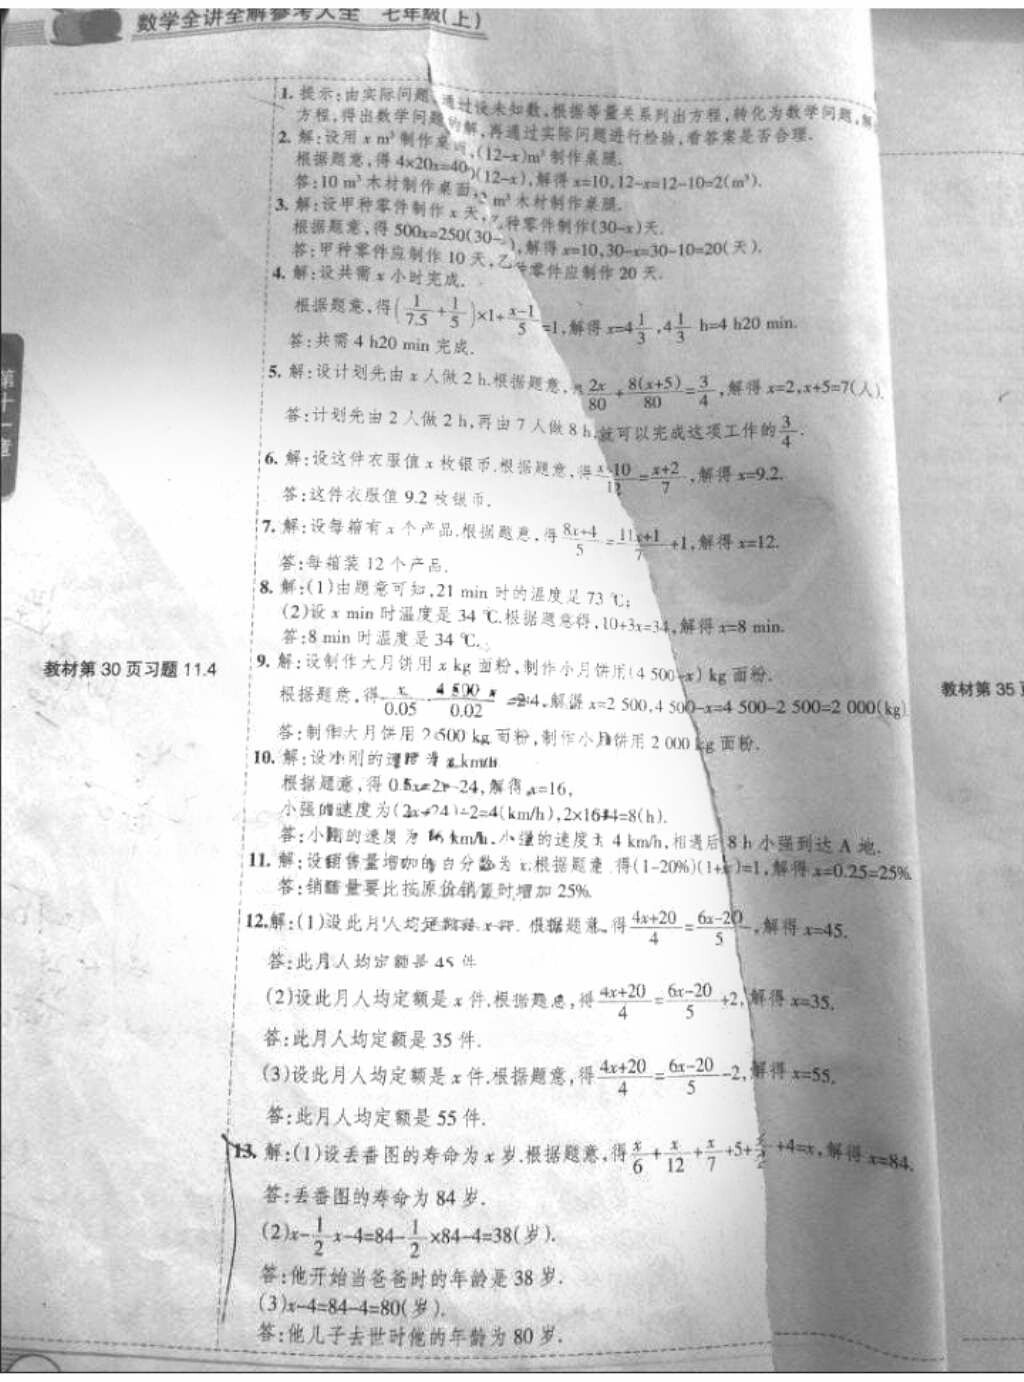 数学全讲全解参考大全 七年级(上)
第十一章
教材第30页习题11.4
教材第35页
1. 提示:由实际问题,通过设未知数,根据等量关系列出方程,转化为数学问题,解
方程,得出数学问题的解,再通过实际问题进行检验,看答案是否合理.
2. 解:设用 x m³ 制作桌面,(12-x)m³ 制作桌腿.
根据题意,得 4×20x=400(12-x),解得 x=10,12-x=12-10=2(m³).
答:10 m³ 木材制作桌面,2 m³ 木材制作桌腿.
3. 解:设甲种零件制作 x 天,乙种零件制作(30-x)天.
根据题意,得 500x=250(30-x),解得 x=10,30-x=30-10=20(天).
答:甲种零件应制作 10 天,乙种零件应制作 20 天.
4. 解:设共需 x 小时完成.
根据题意,得(1/7.5+1/5)×1+(x-1)/5=1,解得 x=4 1/3,4 1/3 h=4 h20 min.
答:共需 4 h20 min 完成.
5. 解:设计划先由 x 人做 2 h.根据题意,得 2x/80+8(x+5)/80=3/4,解得 x=2,x+5=7(人).
答:计划先由 2 人做 2 h,再由 7 人做 8 h,就可以完成这项工作的 3/4.
6. 解:设这件衣服值 x 枚银币.根据题意,得 (x+10)/12=(x+2)/7,解得 x=9.2.
答:这件衣服值 9.2 枚银币.
7. 解:设每箱有 x 个产品.根据题意,得 (8x+4)/5=(11x+1)/7+1,解得 x=12.
答:每箱装 12 个产品.
8. 解:(1)由题意可知,21 min 时的温度是 73 ℃;
(2)设 x min 时温度是 34 ℃.根据题意得,10+3x=34,解得 x=8 min.
答:8 min 时温度是 34 ℃.
9. 解:设制作大月饼用 x kg 面粉,制作小月饼用(4 500-x) kg 面粉.
根据题意,得 x/0.05 4 500-x/0.02=2:4,解得 x=2 500,4 500-x=4 500-2 500=2 000(kg)
答:制作大月饼用 2 500 kg 面粉,制作小月饼用 2 000 kg 面粉.
10. 解:设小刚的速度为 x km/h
根据题意,得 0.5x=2x-24,解得 x=16,
小强的速度为(2x-24)÷2=4(km/h),2×16÷4=8(h).
答:小刚的速度为 16 km/h,小强的速度为 4 km/h,相遇后 8 h 小强到达 A 地.
11. 解:设销售量增加的百分数为 x.根据题意,得(1-20%)(1+x)=1,解得 x=0.25=25%.
答:销售量要比按原价销售时增加 25%.
12. 解:(1)设此月人均定额是 x 件. 根据题意,得 (4x+20)/4=(6x-20)/5,解得 x=45.
答:此月人均定额是 45 件
(2)设此月人均定额是 x 件.根据题意,得 (4x+20)/4=(6x-20)/5+2,解得 x=35.
答:此月人均定额是 35 件.
(3)设此月人均定额是 x 件.根据题意,得 (4x+20)/4=(6x-20)/5-2,解得 x=55.
答:此月人均定额是 55 件.
13. 解:(1)设丢番图的寿命为 x 岁.根据题意,得 x/6+x/12+x/7+5+x/2+4=x,解得 x=84.
答:丢番图的寿命为 84 岁.
(2)x-1/2 x-4=84-1/2×84-4=38(岁).
答:他开始当爸爸时的年龄是 38 岁.
(3)x-4=84-4=80(岁).
答:他儿子去世时他的年龄为 80 岁.